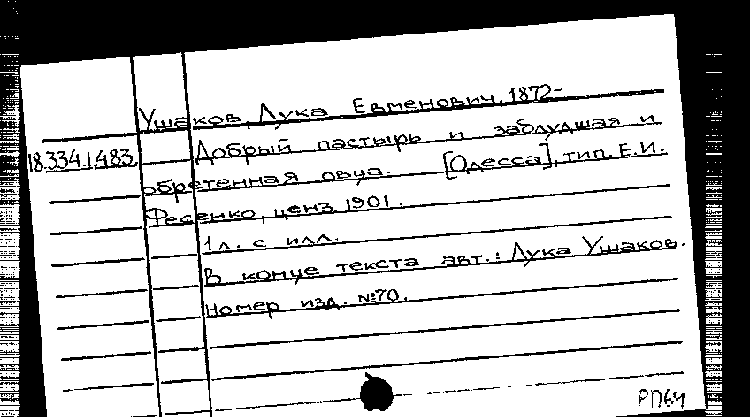 Ушаков, Лука Евменович, 1872-
18.334.1.483. Добрый пастырь и заблудшая и
обретенная овца. [Одесса], тип. Е.И.
Фесенко, ценз. 1901.
1 л. с илл.
В конце текста авт.: Лука Ушаков.
Номер изд. №70.
РП64